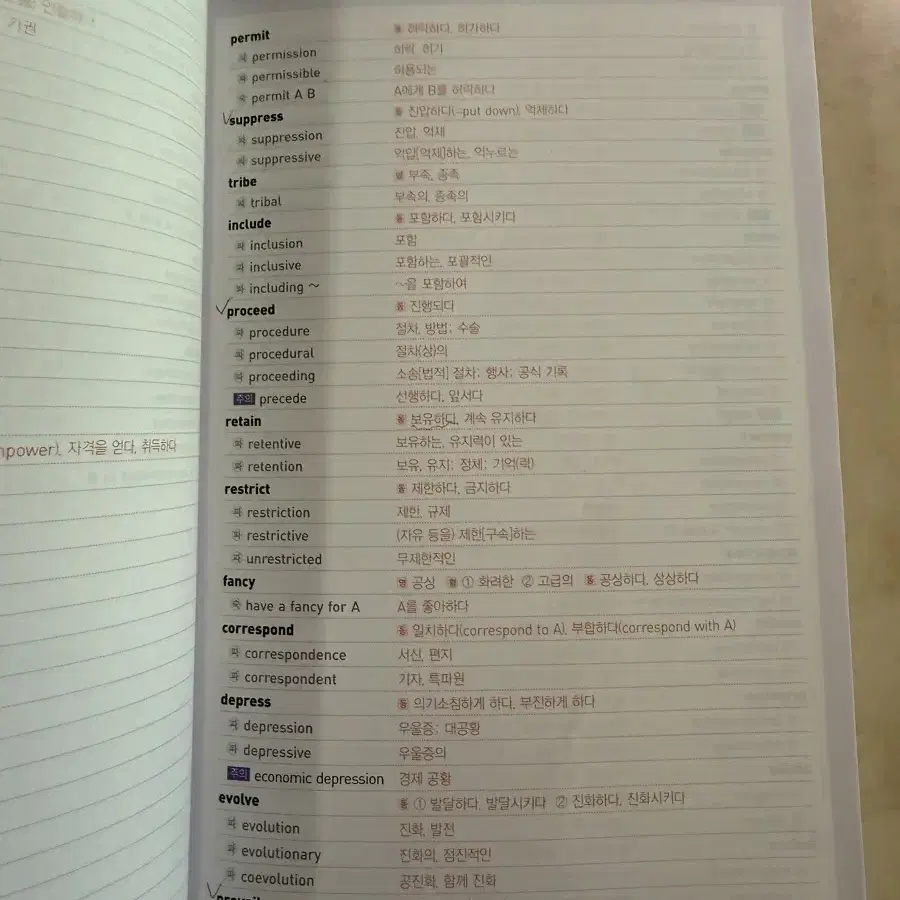 가권
npower), 자격을 얻다, 취득하다
permit 동 허락하다, 허가하다
파 permission 허락, 허가
파 permissible 허용되는
숙 permit A B A에게 B를 허락하다
suppress 동 진압하다(=put down), 억제하다
파 suppression 진압, 억제
파 suppressive 억압[억제]하는, 억누르는
tribe 명 부족, 종족
파 tribal 부족의, 종족의
include 동 포함하다, 포함시키다
파 inclusion 포함
파 inclusive 포함하는, 포괄적인
파 including ~ ~을 포함하여
proceed 동 진행되다
파 procedure 절차, 방법; 수술
파 procedural 절차(상)의
파 proceeding 소송[법적] 절차; 행사; 공식 기록
주의 precede 선행하다, 앞서다
retain 동 보유하다, 계속 유지하다
파 retentive 보유하는, 유지력이 있는
파 retention 보유, 유지; 정체; 기억(력)
restrict 동 제한하다, 금지하다
파 restriction 제한, 규제
파 restrictive (자유 등을) 제한[구속]하는
파 unrestricted 무제한적인
fancy 명 공상 형 ① 화려한 ② 고급의 동 공상하다, 상상하다
숙 have a fancy for A A를 좋아하다
correspond 동 일치하다(correspond to A), 부합하다(correspond with A)
파 correspondence 서신, 편지
파 correspondent 기자, 특파원
depress 동 의기소침하게 하다, 부진하게 하다
파 depression 우울증; 대공황
파 depressive 우울증의
주의 economic depression 경제 공황
evolve 동 ① 발달하다, 발달시키다 ② 진화하다, 진화시키다
파 evolution 진화, 발전
파 evolutionary 진화의, 점진적인
파 coevolution 공진화, 함께 진화